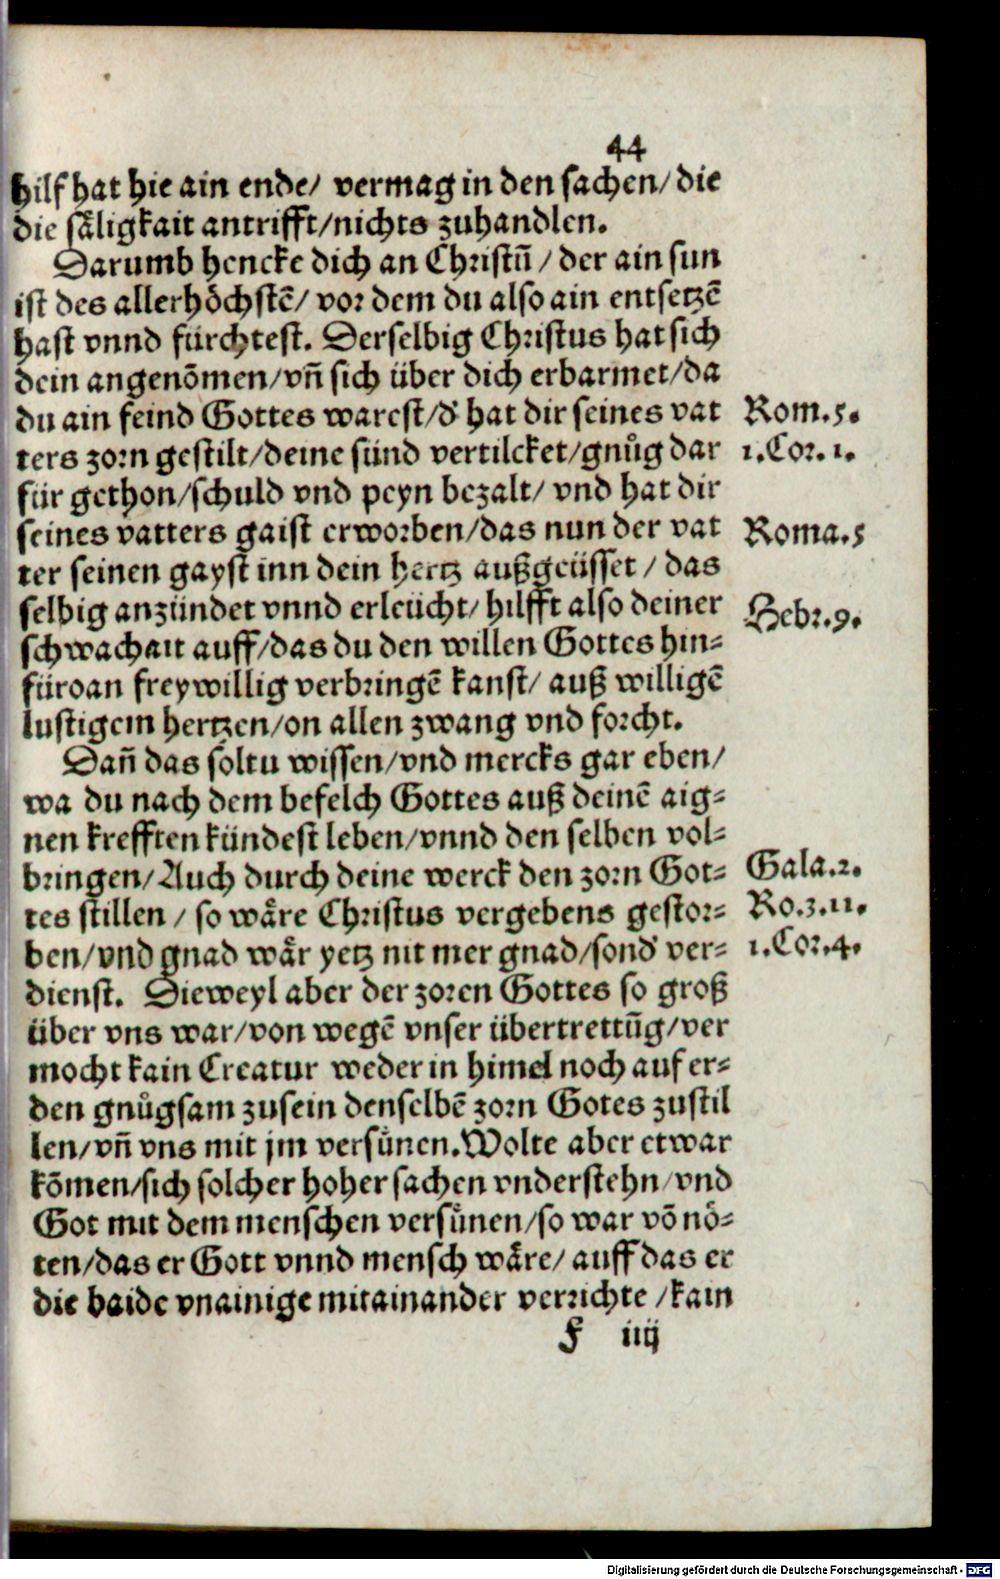 44
hilf hat hie ain ende/ vermag in den sachen/ die
die såligkait antrifft/nichts zuhandlen.
Darumb hencke dich an Christū/ der ain sun
ist des allerhöchstē/ vor dem du also ain entsetzē
hast vnnd fürchtest. Derselbig Christus hat sich
dein angenōmen/vn̄ sich über dich erbarmet/da
du ain feind Gottes warest/d' hat dir seines vat
Rom.5.
ters zorn gestilt/deine sünd vertilcket/gnůg dar
1.Cor.1.
für gethon/schuld vnd peyn bezalt/ vnd hat dir
seines vatters gaist erworben/das nun der vat
Roma.5
ter seinen gayst inn dein hertz außgeüsset/ das
selbig anzündet vnnd erleücht/ hilfft also deiner
Hebr.9.
schwachait auff/das du den willen Gottes hin=
füroan freywillig verbringē kanst/ auß willigē
lustigem hertzen/on allen zwang vnd forcht.
Dan̄ das soltu wissen/vnd mercks gar eben/
wa du nach dem befelch Gottes auß deinē aig=
nen krefften kündest leben/vnnd den selben vol=
bringen/Auch durch deine werck den zorn Got=
Gala.2.
tes stillen/ so wåre Christus vergebens gestor=
Ro.3.11.
ben/vnd gnad wår yetz nit mer gnad/sond' ver=
1.Cor.4.
dienst. Dieweyl aber der zoren Gottes so groß
über vns war/von wegē vnser übertrettūg/ver
mocht kain Creatur weder in himel noch auf er=
den gnůgsam zusein denselbē zorn Gotes zustil
len/vn̄ vns mit jm versünen.Wolte aber etwar
kōmen/sich solcher hoher sachen vnderstehn/vnd
Got mit dem menschen versünen/so war vō nö=
ten/das er Gott vnnd mensch wåre/ auff das er
die baide vnainige mitainander verrichte/kain
F iiij
Digitalisierung gefördert durch die Deutsche Forschungsgemeinschaft - DFG